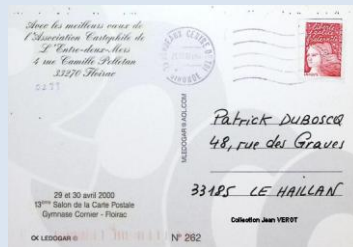 Avec les meilleurs vœux de
l'Association Cartophile de
L'Entre-deux-Mers
4 rue Camille Pelletan
33270 Floirac
BORDEAUX
GIRONDE
MLEDOGAR@AOL.COM
Patrick DUBOSCQ
48, rue des Graves
33185 LE HAILLAN
29 et 30 avril 2000
13ème Salon de la Carte Postale
Gymnase Cornier - Floirac
Collection Jean VEROT
OK LEDOGAR ®
N° 262